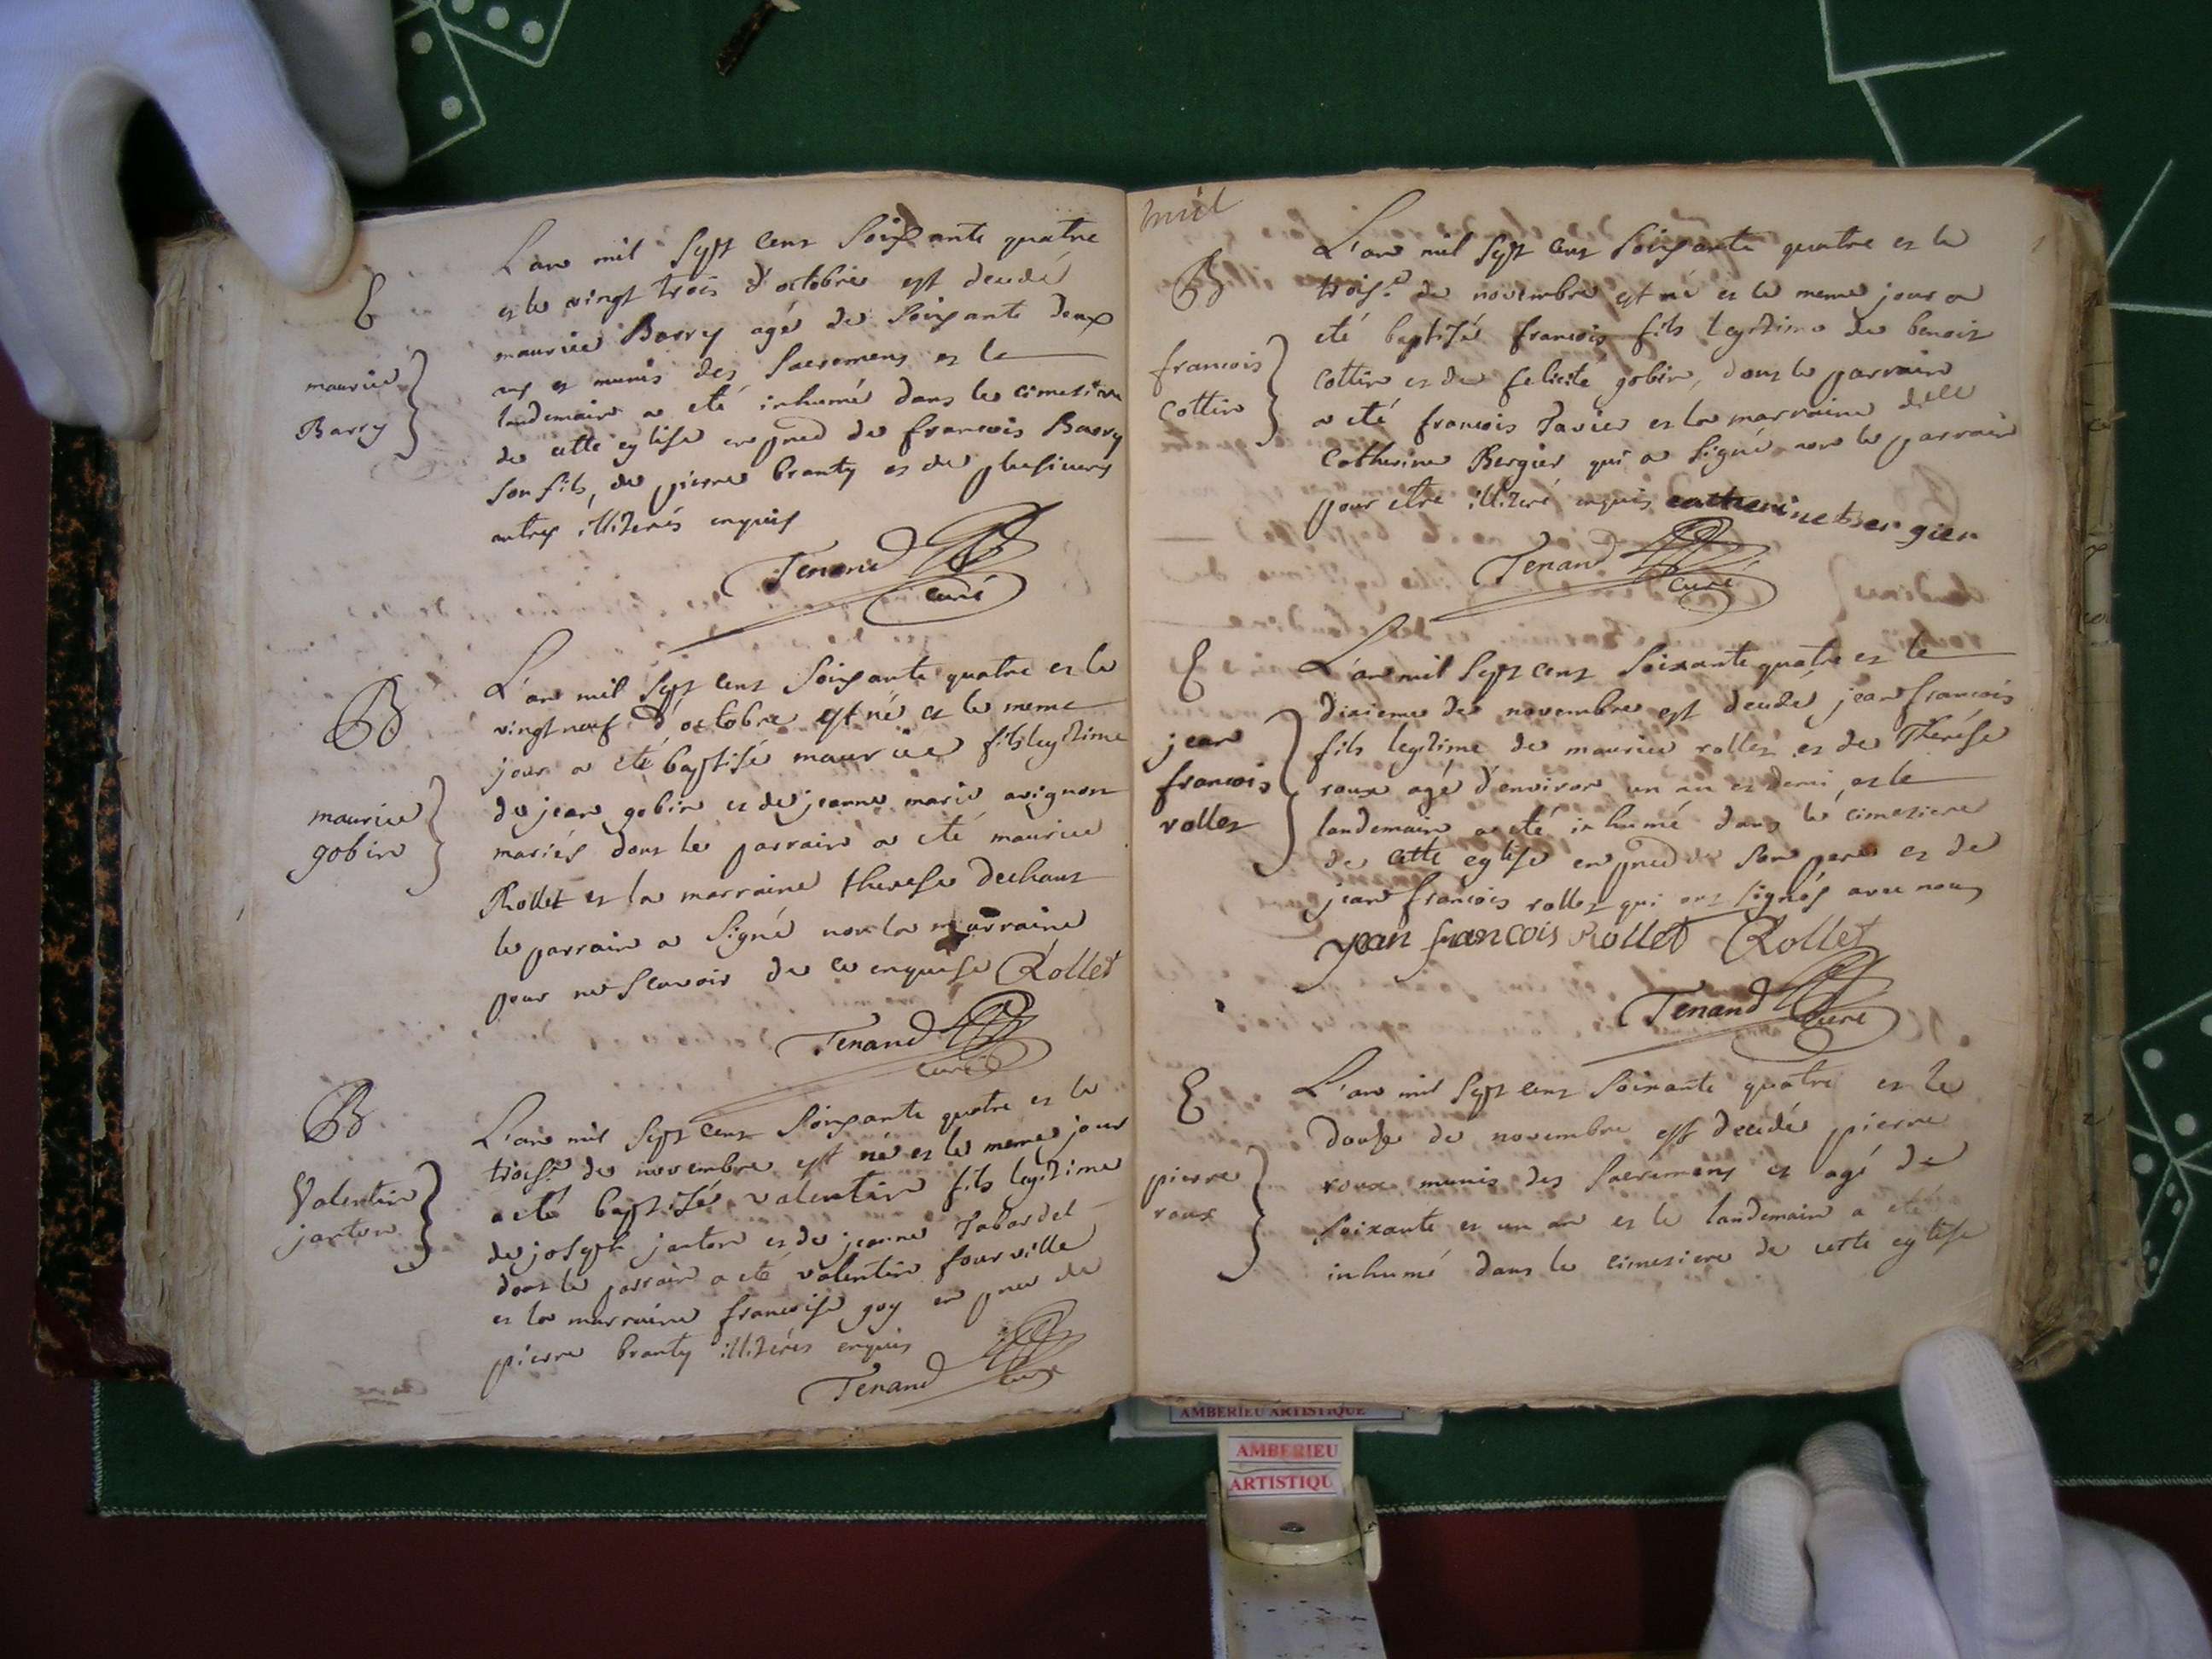 L'an mil sept cent soixante quatre
E
et le vingt trois d'octobre est decedé
maurice Barry agé de soixante deux
maurice
Barry
ans et munis des sacremens et le
landemain a eté inhumé dans le cimetiere
de cette eglise en pnce de francois Barry
son fils, de pierre branty et de plusieurs
autres illiterés enquis
Tenand
curé
L'an mil sept cent soixante quatre et le
B
vingt neuf d'octobre est né et le meme
jour a eté baptisé maurice fils legitime
maurice
gobin
de jean gobin et de jeanne marie avignon
mariés dont le parrain a eté maurice
Rollet et la marraine therese dechaut
le parrain a signé non la marraine
pour ne scavoir de ce enquise Rollet
Tenand
curé
B
L'an mil sept cent soixante quatre et le
trois.e de novembre est né et le meme jour
a eté baptisé valentin fils legitime
Valentin
janton
de joseph janton et de jeanne Tabardel
dont le parrain a eté valentin fourville
et la marraine francoise goy en pnce de
pierre branty illiterés enquis
Tenand
curé
mil
L'an mil sept cent soixante quatre et le
B
trois.e de novembre est né et le meme jour a
eté baptisé francois fils legitime de benoit
francois
cottin
cottin et de felicité gobin, dont le parrain
a eté francois Tavier et la marraine dlle
Catherine Bergier qui a signé non le parrain
pour etre illiteré enquis catherine bergier
Tenand
curé
E
L'an mil sept cent soixante quatre et le
dixieme de novembre est decedé jean francois
jean
francois
rollet
fils legitime de maurice rollet et de Therése
roux agé d'environ un an et demi, et le
landemain a eté inhumé dans le cimetiere
de cette eglise en pnce de son pere et de
jean francois rollet qui ont signés avec nous
jean francois Rollet Rollet
Tenand
curé
E
L'an mil sept cent soixante quatre et le
douze de novembre est decedé pierre
pierre
roux
roux munis des sacremens et agé de
soixante et un an et le landemain a eté
inhumé dans le cimetiere de cette eglise
AMBERIEU ARTISTIQUE
AMBERIEU
ARTISTIQU